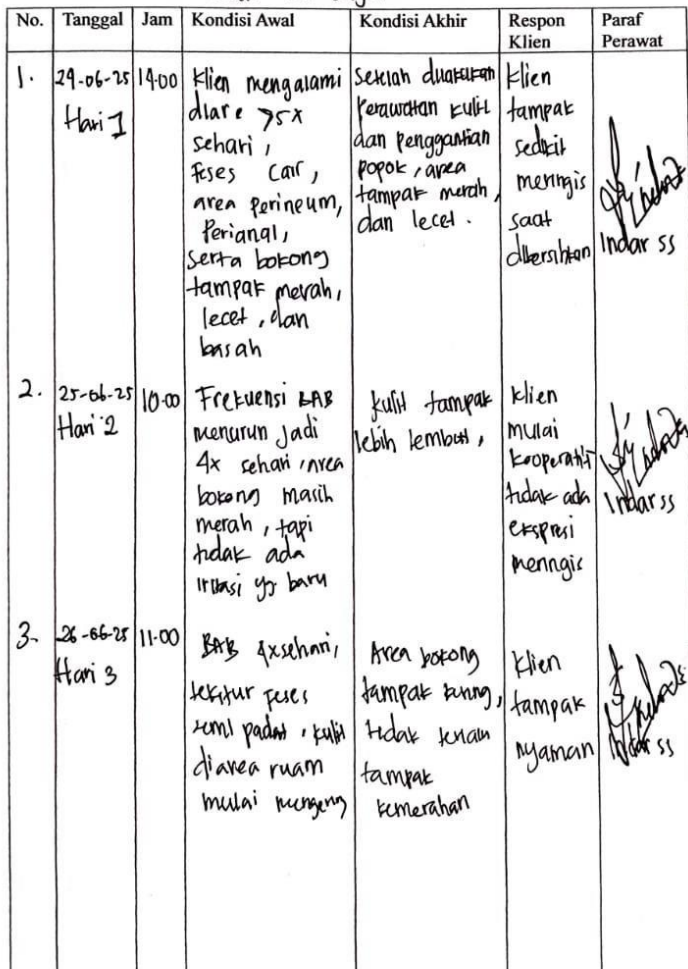 No. Tanggal Jam Kondisi Awal Kondisi Akhir Respon Klien Paraf Perawat
1. 24-06-25 14.00
Hari 1
Klien mengalami
diare >5x
sehari,
Feses cair,
area Perineum,
Perianal,
serta bokong
tampak merah,
lecet, dan
basah
Setelah dilakukan
Perawatan kulit
dan penggantian
popok, area
tampak merah,
dan lecet.
Klien
tampak
sedikit
meringis
saat
dibersihkan
Indar ss
2. 25-06-25 10.00
Hari 2
Frekuensi BAB
menurun Jadi
4x sehari, area
bokong masih
merah, tapi
tidak ada
iritasi yg baru
kulit tampak
lebih lembut,
klien
mulai
kooperatif
tidak ada
ekspresi
meringis
Indar ss
3. 26-06-25 11.00
Hari 3
BAB 4x sehari,
tekstur feses
semi padat, kulit
diarea ruam
mulai
Area bokong
tampak
tidak
tampak
kemerahan
Klien
tampak
nyaman
Indar ss